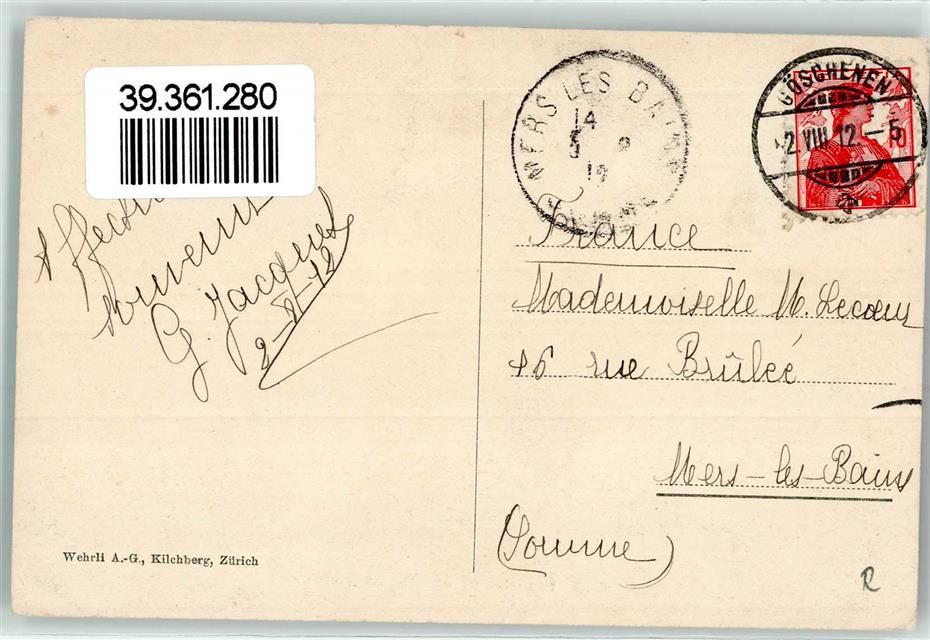 39.361.280
Affect
souvenir
G. Jacques
Wehrli A.-G., Kilchberg, Zürich
MERS LES BAINS
14
GÖSCHENEN
2.VIII.12.-5
10
France
Mademoiselle M. Lecoeur
16 rue Brûlée
Mers-les-Bains
(Somme)
R